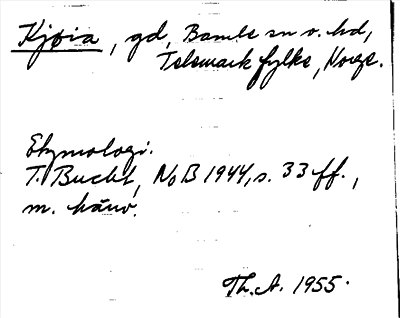 Kjøia, gd, Bamle sn o. hd,
Telemark fylke, Norge.
Etymologi.
T. Bucht, NoB 1944, s. 33 ff.,
m. hänv.
Th. A. 1955.